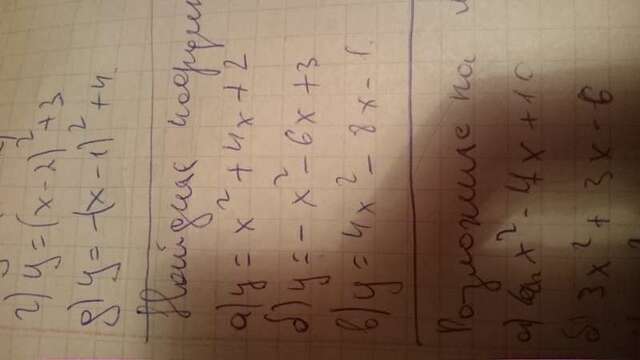 г) y = (x-2)² + 3
д) y = -(x-1)² + 4
Найдите коорди
а) y = x² + 4x + 2
б) y = - x² - 6x + 3
в) y = 4x² - 8x - 1
Разложите на
а) x² - 7x + 10
б) 3x² + 3x - 6